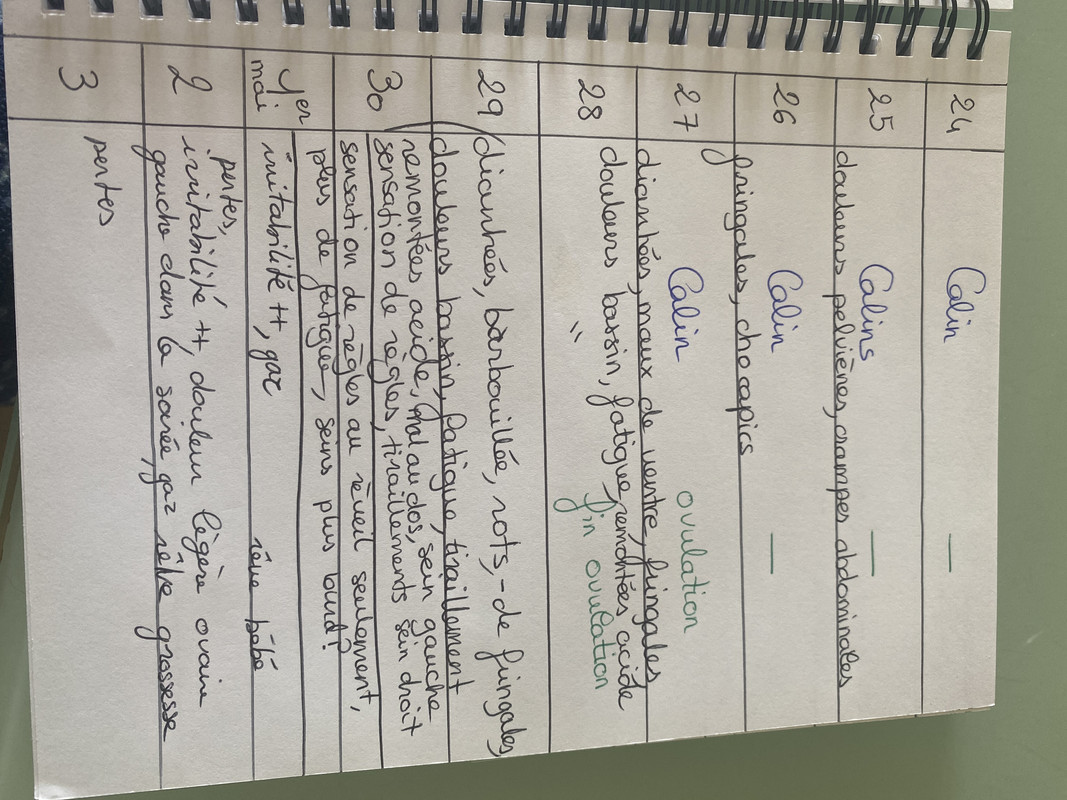 24 Calin —
25 Calins —
douleurs pelviènes, crampes abdominales
26 Calin —
fringales, chocapics
27 Calin ovulation
diarrhées, maux de ventre, fringales
28 douleurs bassin, fatigue, remontées acide
" fin ovulation
29 (diarrhées, barbouillée, rots, - de fringales,
douleurs bassin, fatigue, tiraillement
remontées acide, mal au dos, sein gauche
30 sensation de règles, tiraillements sein droit
sensation de règles au réveil seulement,
plus de fatigue, seins plus lourd?
1er
mai irritabilité ++, gaz rêve bébé
pertes,
2 irritabilité ++, douleur légère ovaire
gauche dans la soirée, gaz rêve grossesse
3 pertes